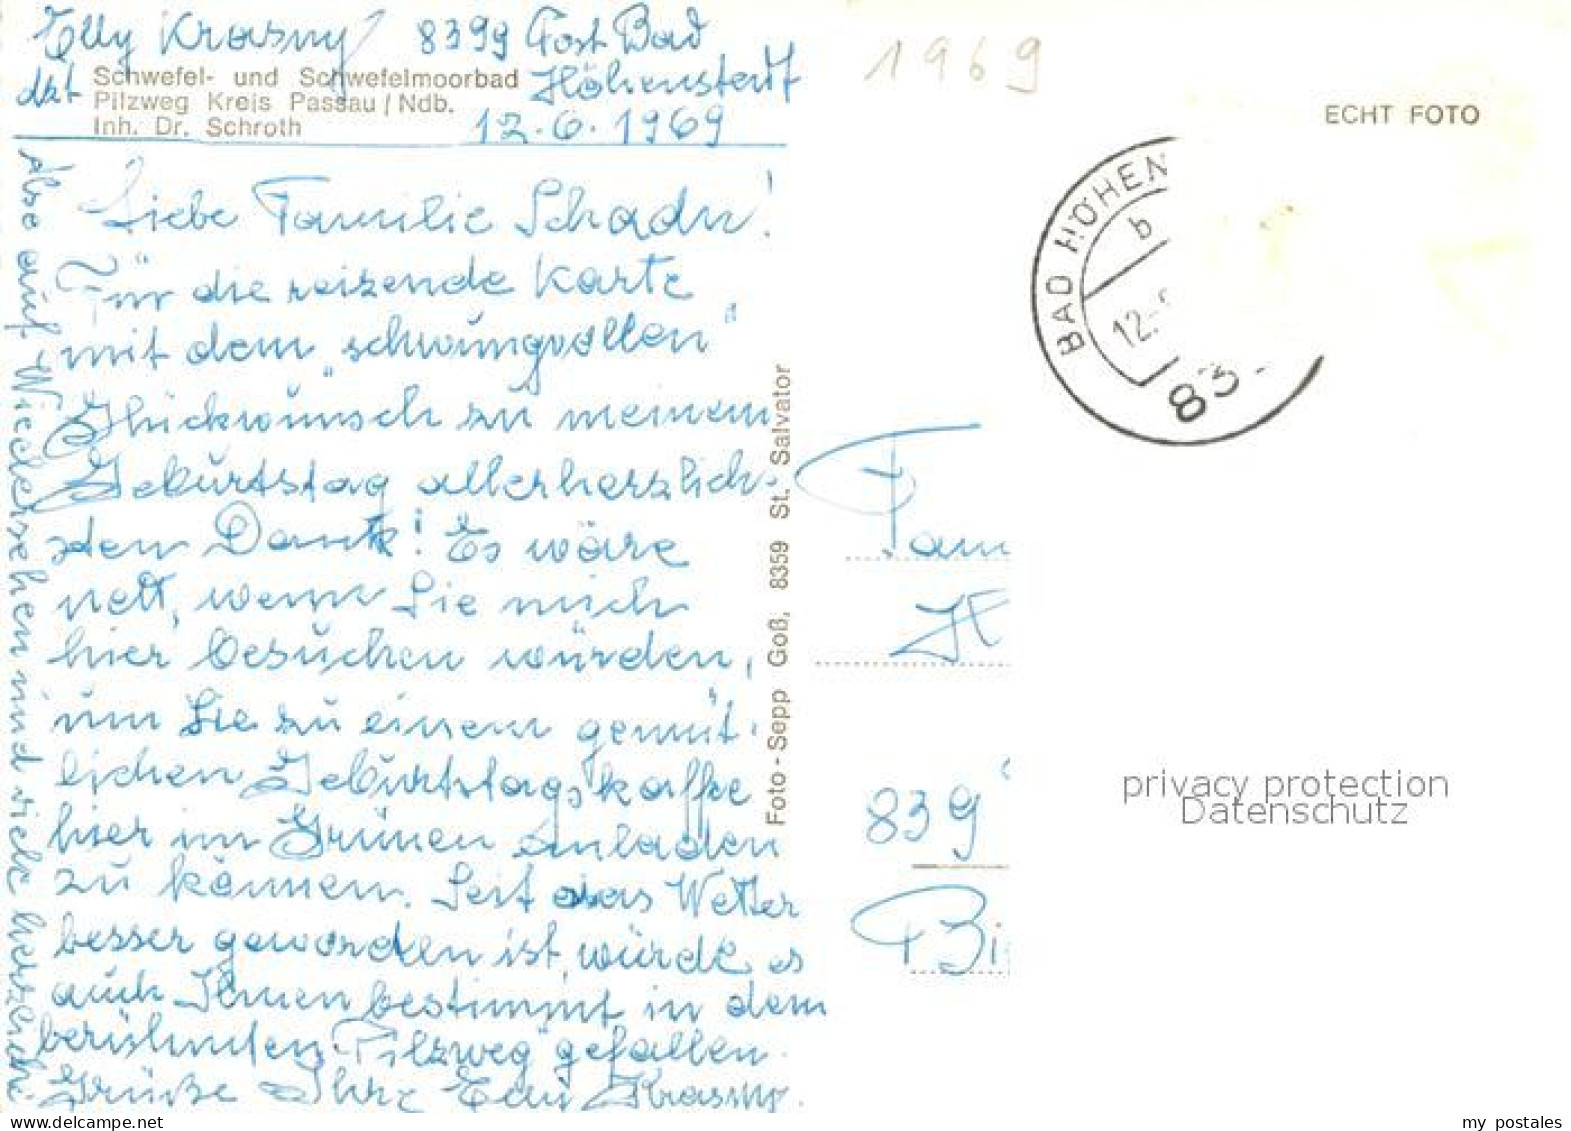 Elly Krasny 8399 Post Bad
dzt Schwefel- und Schwefelmoorbad Höhenstedt
Pilzweg Kreis Passau/Ndb.
Inh. Dr. Schroth 12.6.1969
Liebe Familie Schadn!
Für die reizende Karte
mit dem "schwungvollen"
Glückwunsch zu meinem
Geburtstag allerherzlich-
sten Dank! Es wäre
nett, wenn Sie mich
hier besuchen würden,
um Sie zu einem gemüt-
lichen Geburtstagskaffee
hier im Grünen einladen
zu können. Seit das Wetter
besser geworden ist, würde es
auch Ihnen bestimmt in dem
berühmten "Pilzweg" gefallen.
Grüße Ihre Krasny.
Also auf Wiedersehen und viele herzliche
Foto-Sepp Goß, 8359 St. Salvator
1969
ECHT FOTO
BAD HÖHEN
b
12.
83
Fam
839
privacy protection
Datenschutz
my postales
www.delcampe.net